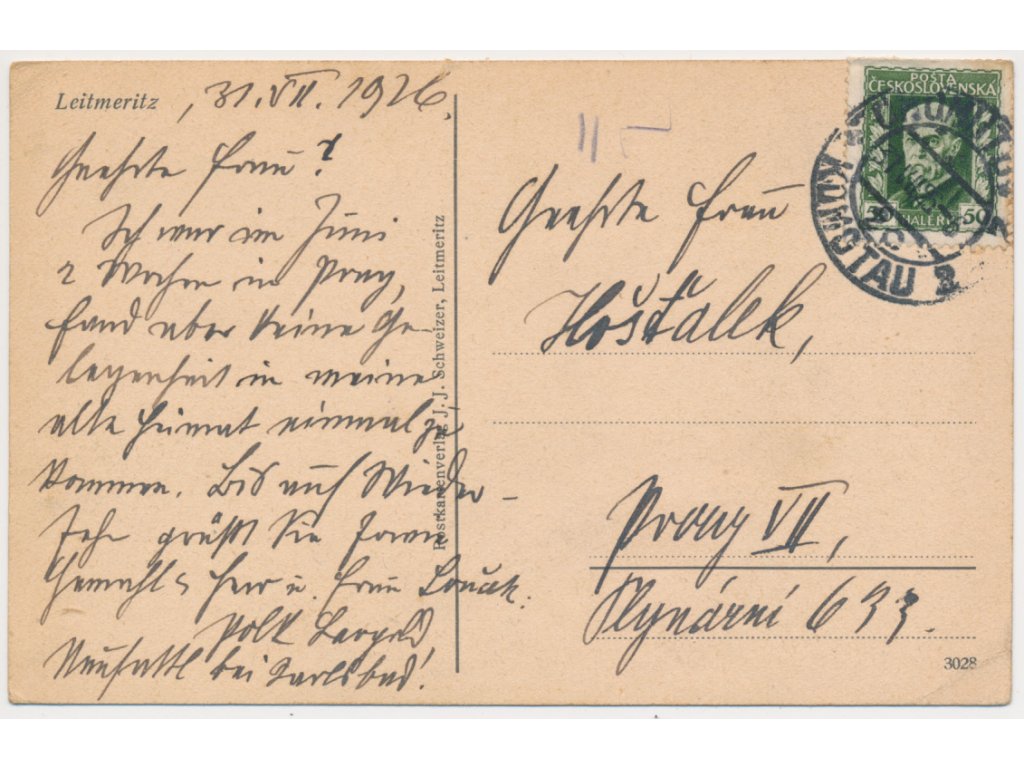 Leitmeritz , 31.VII. 1926.
Geehrte Frau!
Ich war im Juni
2 Wochen in Prag,
fand aber keine Ge-
legenheit in meine
alte Heimat einmal zu
kommen. Bis auf Wieder-
sehn grüßt Sie sowie
Gemahl Herr u. Frau Loučk.
Neusattl bei Karlsbad!
Postkartenverlag J. J. Schweizer, Leitmeritz
POŠTA
ČESKOSLOVENSKÁ
50 HALÉŘŮ 50
KOMOTAU 2
Geehrte Frau
Hošťalek,
Prag VII,
Plynární 633.
3028